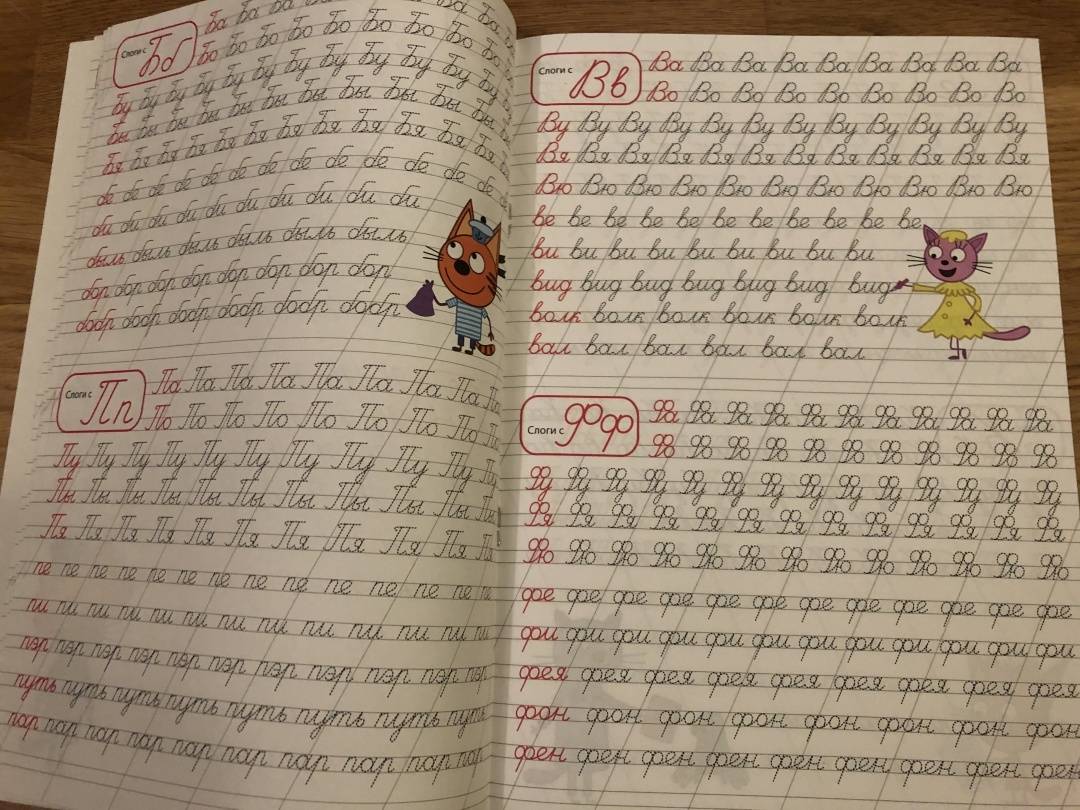 Слоги с Бб Ба Ба Ба Ба Ба Ба Ба Ба
Бо Бо Бо Бо Бо Бо Бо Бо Бо
Бу Бу Бу Бу Бу Бу Бу Бу Бу Бу Бу
Бы Бы Бы Бы Бы Бы Бы Бы Бы Бы
Бя Бя Бя Бя Бя Бя Бя Бя Бя Бя Бя
бе бе бе бе бе бе бе бе бе бе бе бе
би би би би би би би би би би
быль быль быль быль быль быль
бор бор бор бор бор бор бор
бобр бобр бобр бобр бобр бобр
Слоги с Пп Па Па Па Па Па Па Па Па Па
По По По По По По По По По
Пу Пу Пу Пу Пу Пу Пу Пу Пу Пу Пу
Пы Пы Пы Пы Пы Пы Пы Пы Пы Пы Пы
Пя Пя Пя Пя Пя Пя Пя Пя Пя Пя Пя
пе пе пе пе пе пе пе пе пе пе пе пе пе
пи пи пи пи пи пи пи пи пи пи пи пи
пэр пэр пэр пэр пэр пэр пэр пэр пэр пэр
путь путь путь путь путь путь путь путь
пар пар пар пар пар пар пар пар пар пар
Слоги с Вв Ва Ва Ва Ва Ва Ва Ва Ва Ва
Во Во Во Во Во Во Во Во Во
Ву Ву Ву Ву Ву Ву Ву Ву Ву Ву Ву Ву
Вя Вя Вя Вя Вя Вя Вя Вя Вя Вя Вя Вя
Вю Вю Вю Вю Вю Вю Вю Вю Вю Вю Вю
ве ве ве ве ве ве ве ве ве ве ве
ви ви ви ви ви ви ви ви ви
вид вид вид вид вид вид вид
волк волк волк волк волк волк
вал вал вал вал вал вал
Слоги с Фф Фа Фа Фа Фа Фа Фа Фа Фа Фа Фа Фа
Фо Фо Фо Фо Фо Фо Фо Фо Фо Фо Фо
Фу Фу Фу Фу Фу Фу Фу Фу Фу Фу Фу Фу Фу Фу
Фя Фя Фя Фя Фя Фя Фя Фя Фя Фя Фя Фя Фя
Фю Фю Фю Фю Фю Фю Фю Фю Фю Фю Фю Фю Фю
фе фе фе фе фе фе фе фе фе фе фе фе
фи фи фи фи фи фи фи фи фи фи фи фи
фея фея фея фея фея фея фея фея фея
фон фон фон фон фон фон фон фон
фен фен фен фен фен фен фен фен фен